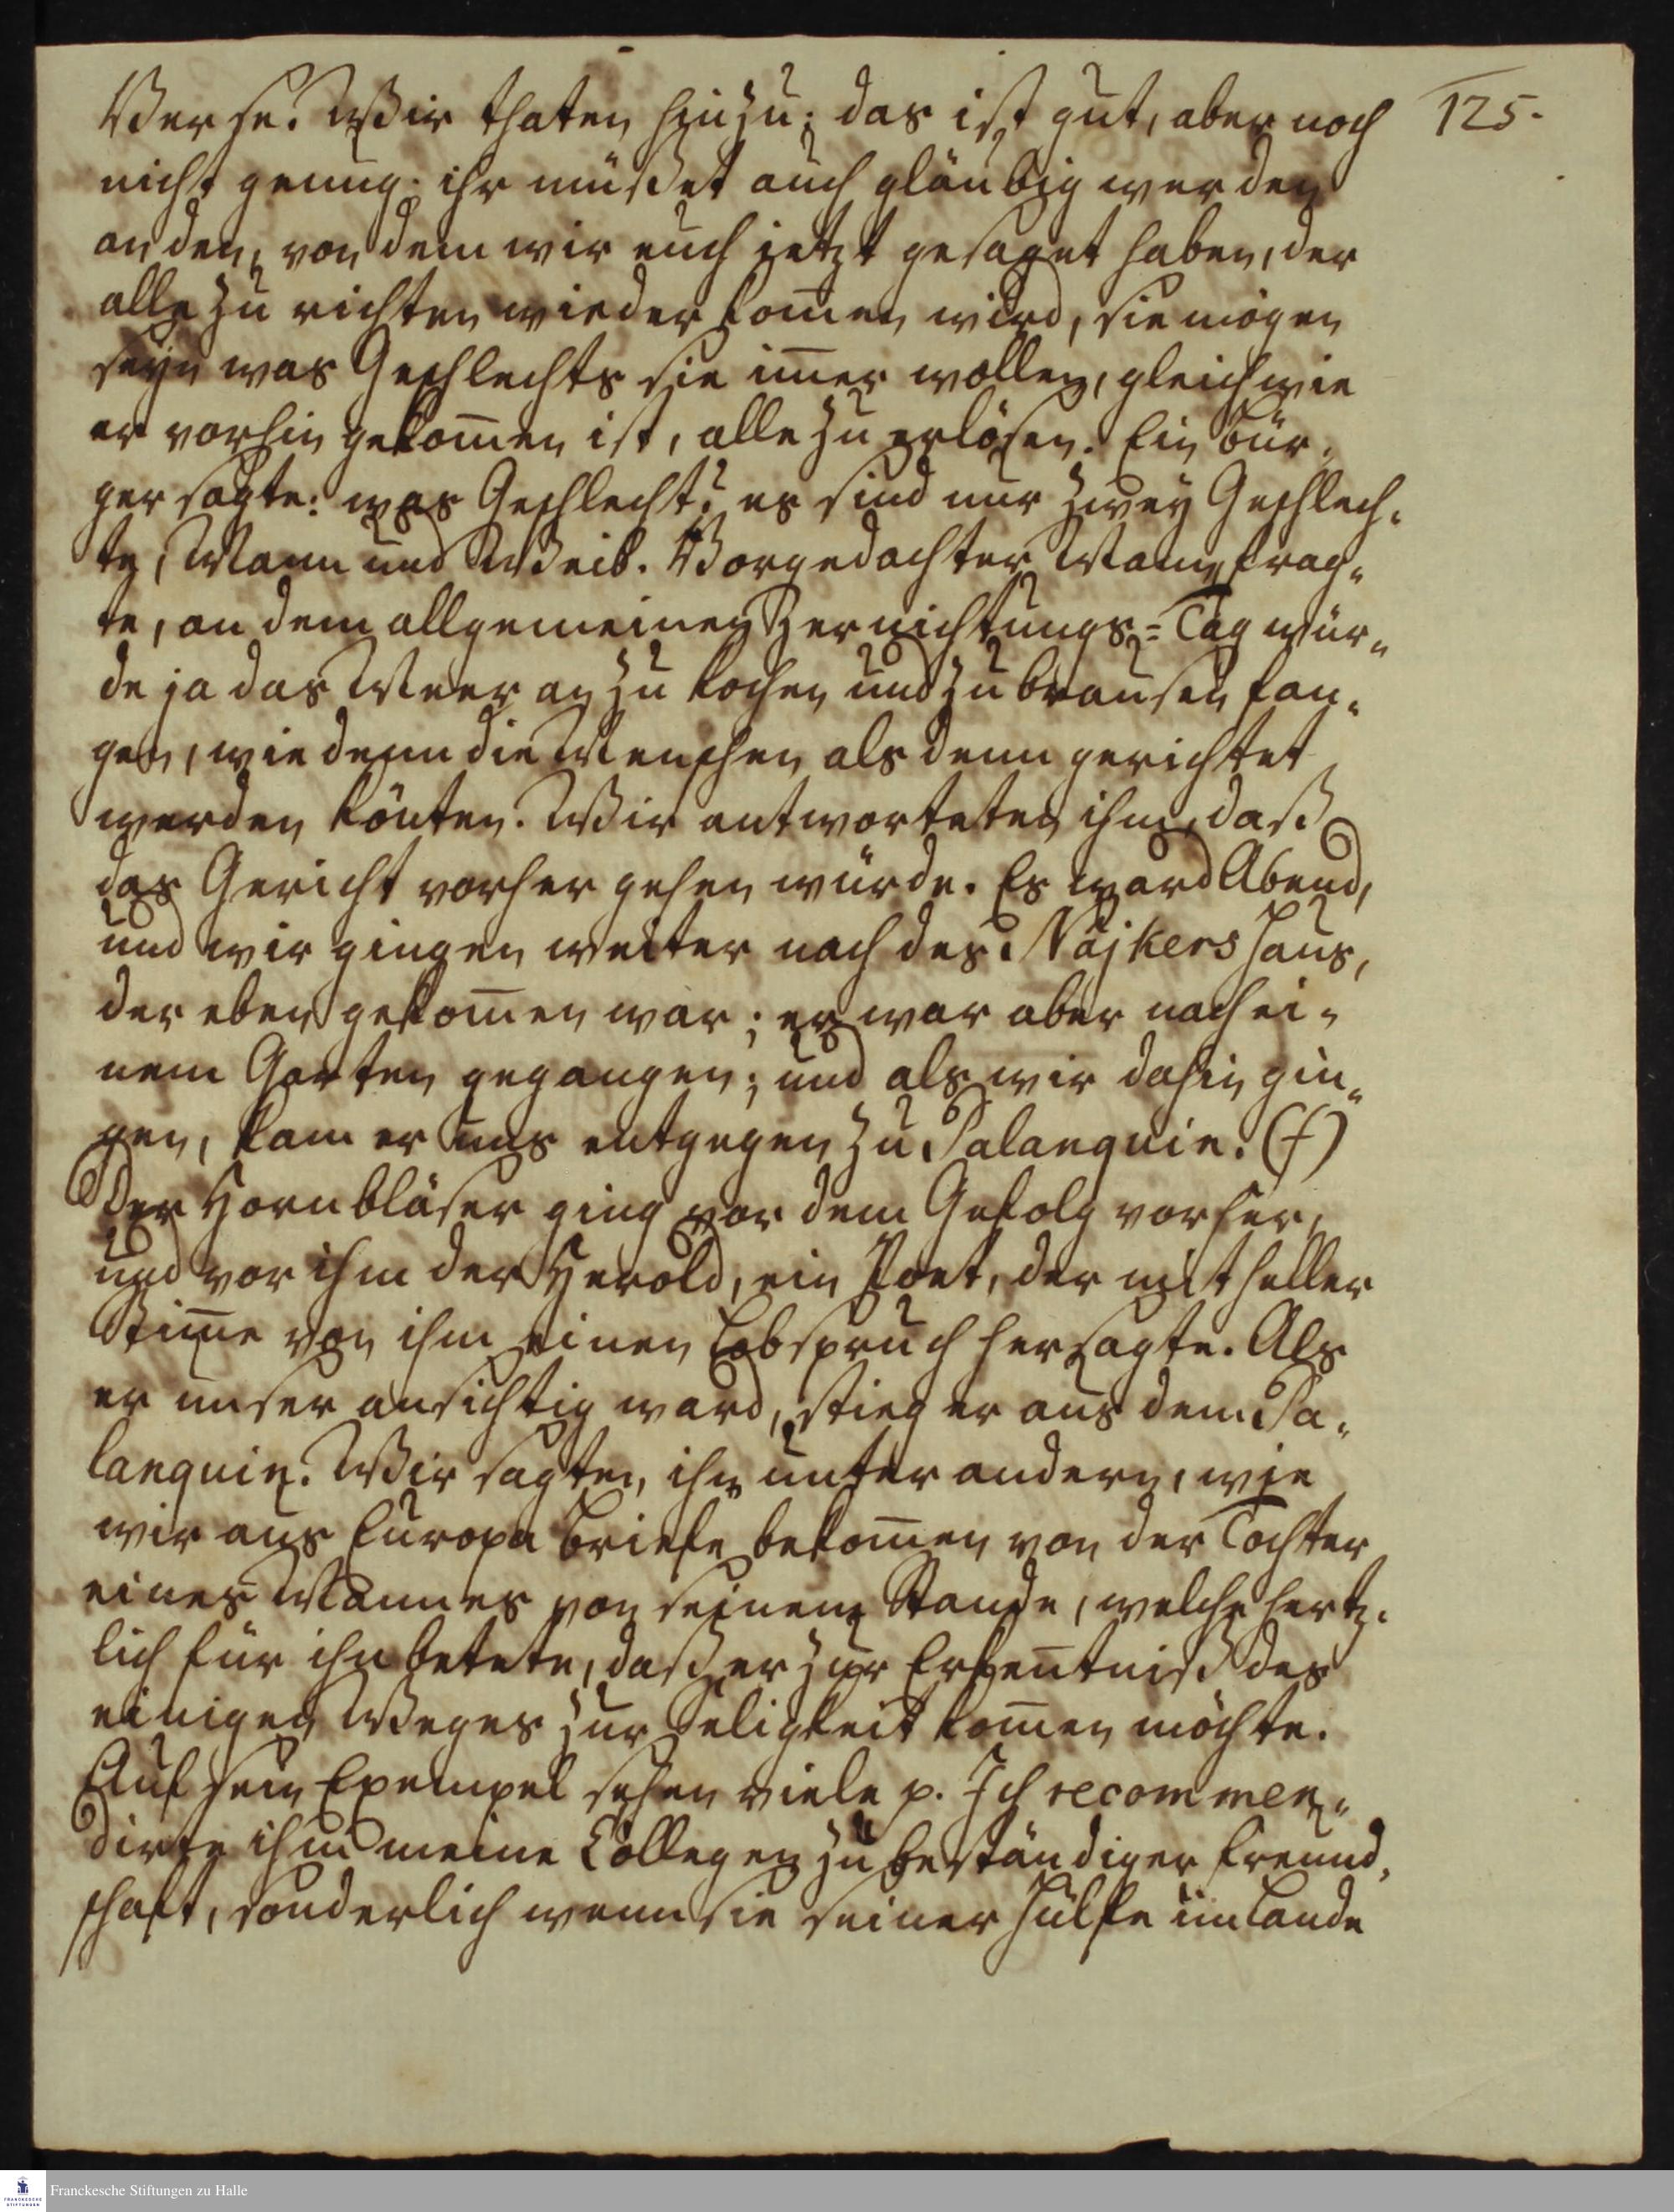 Verse. Wir thaten hinzu: das ist gut, aber noch 125.
nicht genug: ihr müßet auch gläubig werden
an den, von dem wir euch jetzt gesaget haben, der
alle zu richten wieder kom̄en wird, sie mögen
seyn was Geschlechts sie im̄er wollen, gleichwie
er vorhin gekom̄en ist, alle zu erlösen. Ein Bür-
ger sagte: was Geschlecht? es sind nur zwey Geschlech-
te, Mann und Weib. Vorgedachter Mann frag-
te, an dem allgemeinen Zernichtungs-Tag wür-
de ja das Meer an zu kochen und zu brausen fan-
gen, wie denn die Menschen als denn gerichtet
werden könten. Wir antworteten ihm, daß
das Gericht vorher gehen würde. Es ward Abend,
und wir gingen weiter nach des Näjkers Haus,
der eben gekom̄en war; er war aber nach ei-
nem Garten gegangen; und als wir dahin gin-
gen, kam er uns entgegen zu Palanquin. (†)
Der Hornbläser ging vor dem Gefolg vorher,
und vor ihm der Herold, ein Poet, der mit heller
Stim̄e von ihm einen Lobspruch hersagte. Als
er unser ansichtig ward, stieg er aus dem Pa-
lanquin. Wir sagten ihm unter andern, wie
wir aus Europa Briefe bekom̄en von der Tochter
eines Mannes von seinem Stande, welche hertz-
lich für ihn betete, daß er zur Erken̄tniß des
einigen Weges zur Seligkeit kom̄en möchte.
Auf sein Exempel sehen viele p. Ich recommen-
dirte ihm meine Collegen zu beständiger Freund-
schaft, sonderlich wenn sie seiner Hülfe im Lande
Franckesche Stiftungen zu Halle